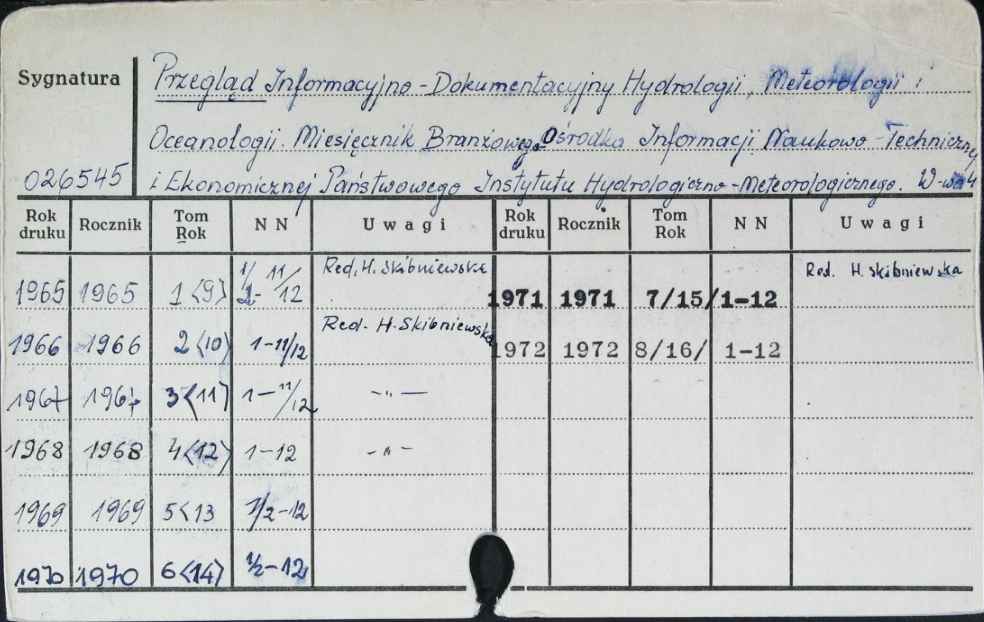 Sygnatura
Przegląd Informacyjno-Dokumentacyjny Hydrologii, Meteorologii i
Oceanologii. Miesięcznik Branżowego Ośrodka Informacji Naukowo-Technicznej
026545 i Ekonomicznej Państwowego Instytutu Hydrologiczno-Meteorologicznego.
Rok druku Rocznik Tom Rok NN Uwagi Rok druku Rocznik Tom Rok NN Uwagi
1965 1965 1<9> 11/12 Red. H. Skibniewska 1971 1971 7/15/ 1-12 Red. H. Skibniewska
1966 1966 2<10) 1-11/12 Red. H. Skibniewska 1972 1972 8/16/ 1-12
1967 1967 3<11> 1-11/12 -"-
1968 1968 4<12> 1-12 -"-
1969 1969 5<13 1/2-12
1970 1970 6<14> 1/2-12